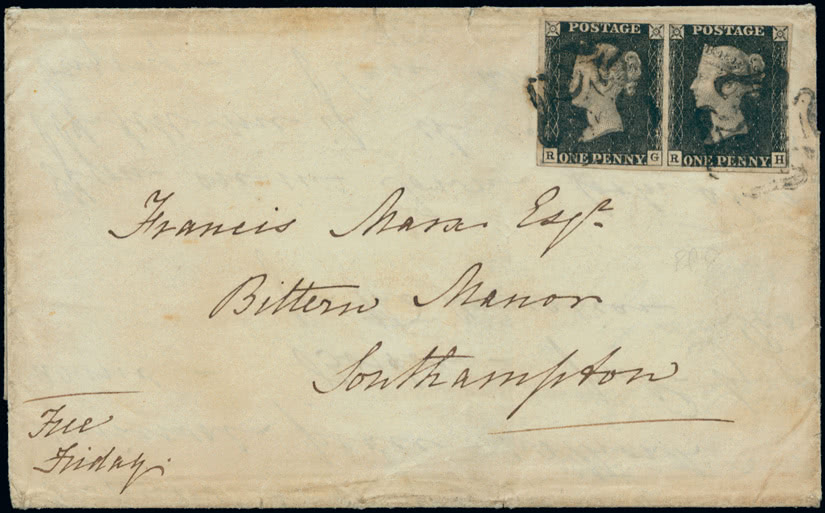 POSTAGE POSTAGE
R ONE PENNY G R ONE PENNY H
Francis Marx Esqr.
Bittern Manor
Southampton
Friday.